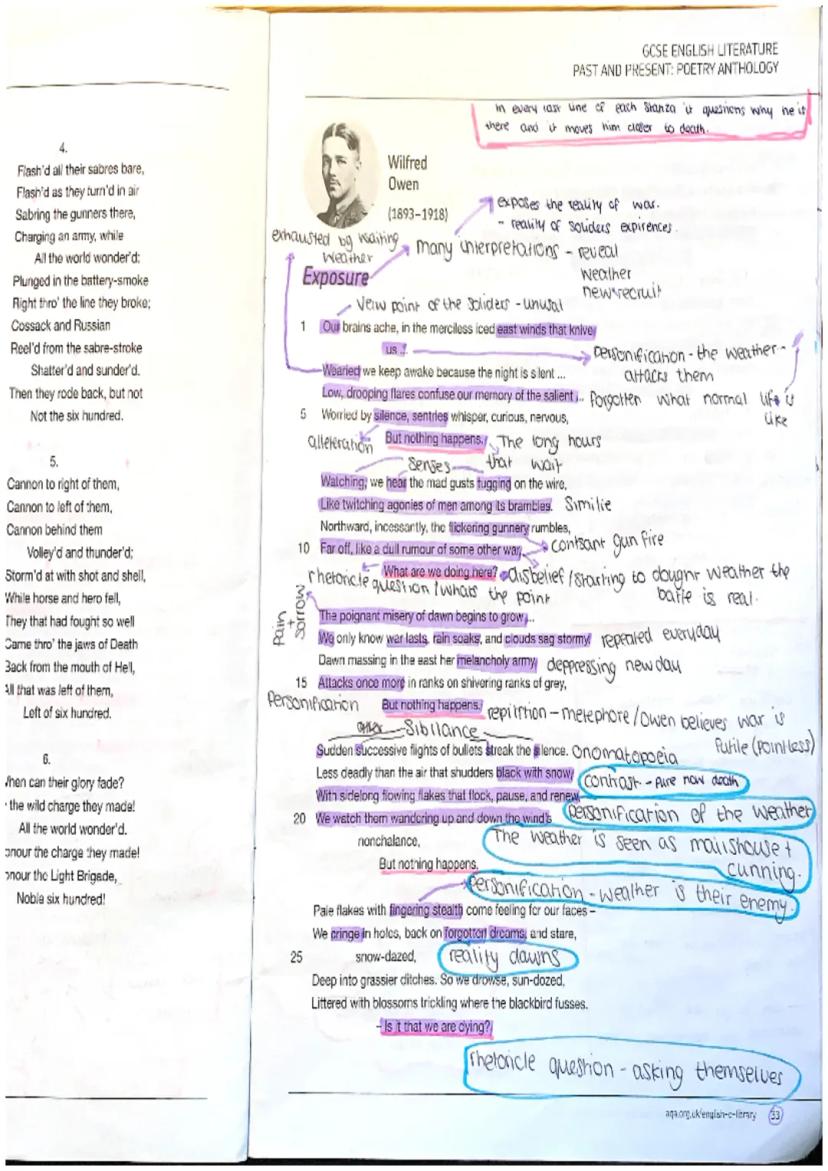 4.
Flash'd all their sabres bare,
Flash'd as they turn'd in air
Sabring the gunners there,
Charging an army, while
All the world wonder'd:
Plunged in the battery-smoke
Right thro' the line they broke;
Cossack and Russian
Reel'd from the sabre-stroke
Shatter'd and sunder'd.
Then they rode back, but not
Not the six hundred.
5.
Cannon to right of them,
Cannon to left of them,
Cannon behind them
Volley'd and thunder'd;
Storm'd at with shot and shell,
While horse and hero fell,
They that had fought so well
Came thro' the jaws of Death
Back from the mouth of Hell,
All that was left of them,
Left of six hundred.
6.
When can their glory fade?
the wild charge they made!
All the world wonder'd.
onour the charge they made!
onour the Light Brigade,
Noble six hundred!
GCSE ENGLISH LITERATURE
PAST AND PRESENT: POETRY ANTHOLOGY
in every last line of each stanza it questions why he is
there and it moves him closer to death.
Wilfred
Owen
(1893–1918)
exposes the reality of war.
- reality of soliders expirences.
exhausted by waiting
weather
many interpretations - reveal
weather
new recruit
Exposure
veiw point of the soliders - unusal
1 Our brains ache, in the merciless iced east winds that knive
us ...
personification - the weather -
attacks them
Wearied we keep awake because the night is silent ...
Low, drooping flares confuse our memory of the salient ...
forgotten what normal life is
like
5 Worried by silence, sentries whisper, curious, nervous,
alleteration
But nothing happens.
The long hours
that wait
senses
Watching, we hear the mad gusts tugging on the wire,
Like twitching agonies of men among its brambles.
Similie
Northward, incessantly, the flickering gunnery rumbles,
10 Far off, like a dull rumour of some other war.
contsant gun fire
What are we doing here?
rhetoricle question / whats the point
disbelief / starting to dought weather the
batle is real.
pain + sorrow
The poignant misery of dawn begins to grow ...
We only know war lasts, rain soaks, and clouds sag stormy.
repeated everyday
Dawn massing in the east her melancholy army
deppressing new day
15 Attacks once more in ranks on shivering ranks of grey,
personification
But nothing happens.
repitition - metephore / Owen believes war is
futile (pointless)
Sibilance
Sudden successive flights of bullets streak the silence.
Onomatopoeia
Less deadly than the air that shudders black with snow,
contrast - pure now death
With sidelong flowing flakes that flock, pause, and renew,
20 We watch them wandering up and down the wind's
nonchalance,
personification of the weather
The weather is seen as mailshouse +
cunning.
But nothing happens.
personification - weather is their enemy.
Pale flakes with fingering stealth come feeling for our faces –
We cringe in holes, back on forgotten dreams, and stare,
25 snow-dazed,
reality dawns
Deep into grassier ditches. So we drowse, sun-dozed,
Littered with blossoms trickling where the blackbird fusses.
– Is it that we are dying?
rhetoricle question - asking themselves
aqa.org.uk/english-e-library 33